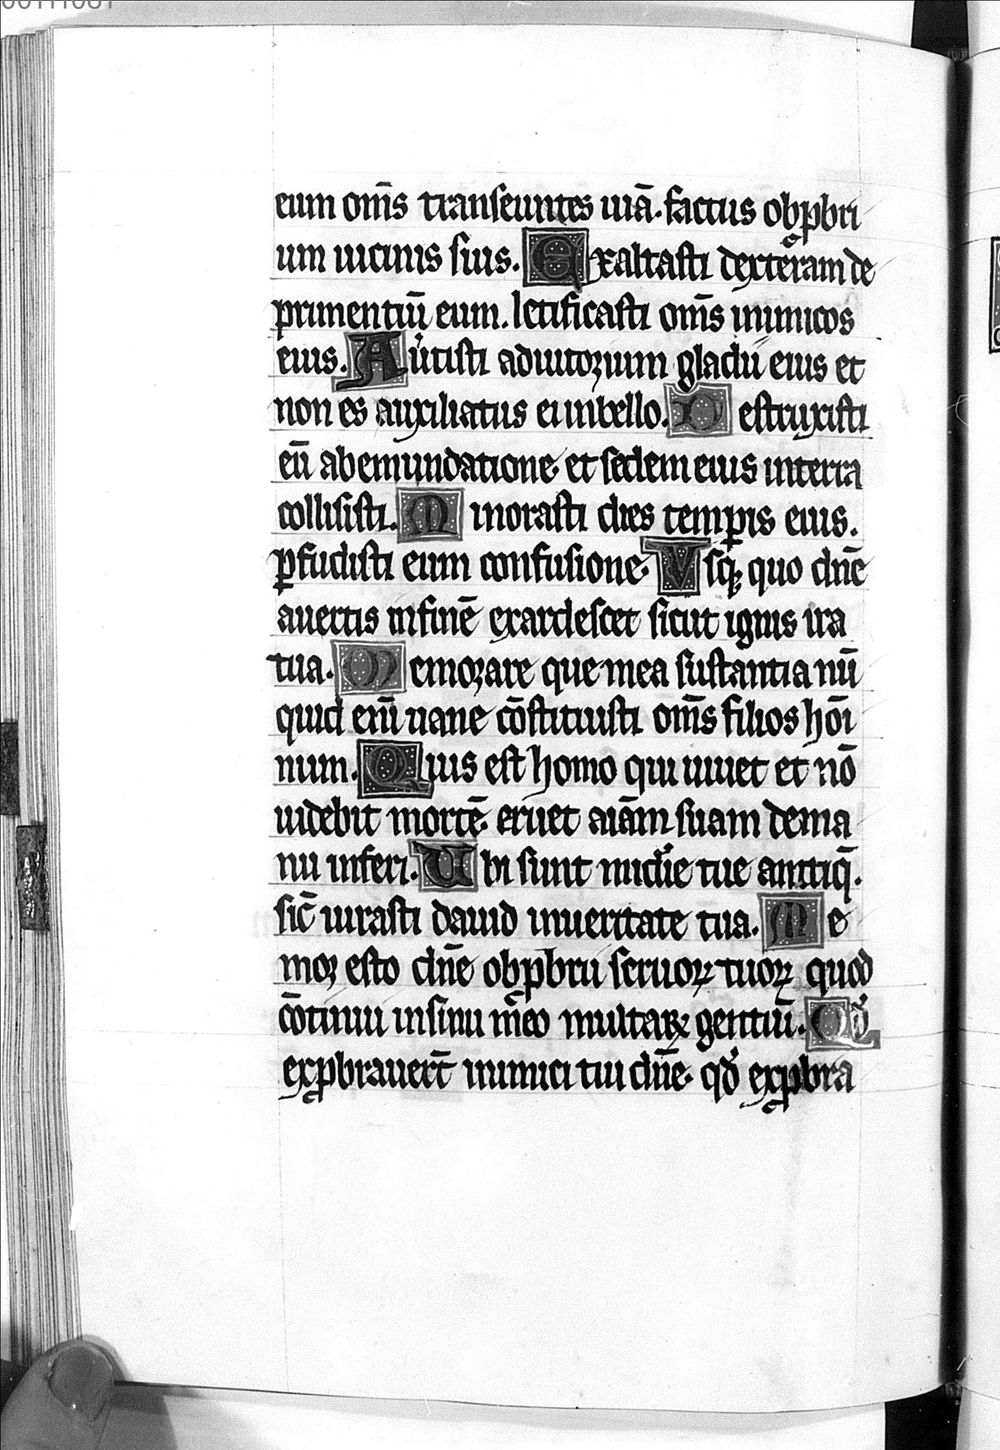 eum om̄s transeuntes uiā. factus obꝓbri
um uicinis suis. Exaltasti dexteram de
primentiū eum. letificasti om̄s inimicos
eius. Auertisti adiutorium gladii eius et
non es auxiliatus ei inbello. Destruxisti
eū abemundatione et sedem eius interra
collisisti. Minorasti dies temꝑis eius.
ꝑfudisti eum confusione. Vsqꝫ quo dn̄e
auertis infinē exardescet sicut ignis ira
tua. Memorare que mea sustantia nū
quid eni᷑ uane cōstituisti om̄s filios hoı̄
num. Quis est homo qui uiuet et nō
uidebit mortē eruet aı̄am suam dema
nu inferi. Ubi sunt mı̄die tue antiq̄.
sic̄ iurasti dauid inueritate tua. Me
mor esto dn̄e obꝓbrii seruoꝝ tuoꝝ quod
cōtinui insinu meo multaꝝ gentiū. Qd̓
exꝓbrauert̄ inimici tui dn̄e qd̓ exꝓbra